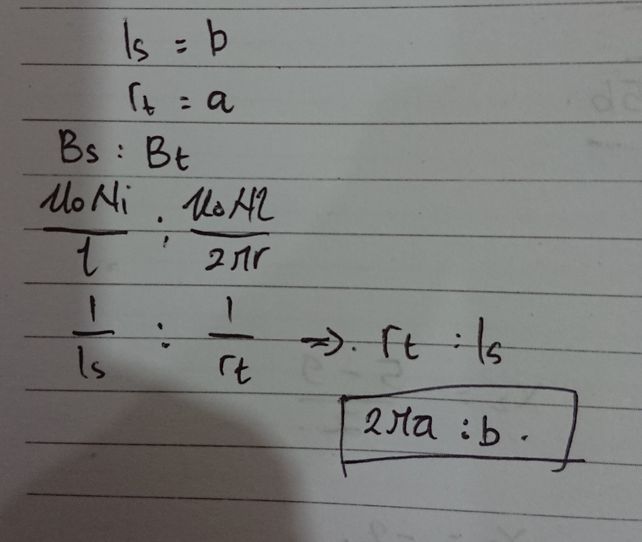 ls = b
rt = a
Bs : Bt
μoNi / l : μoNi / 2πr
1 / ls : 1 / rt ⇒. rt : ls
2πa : b .